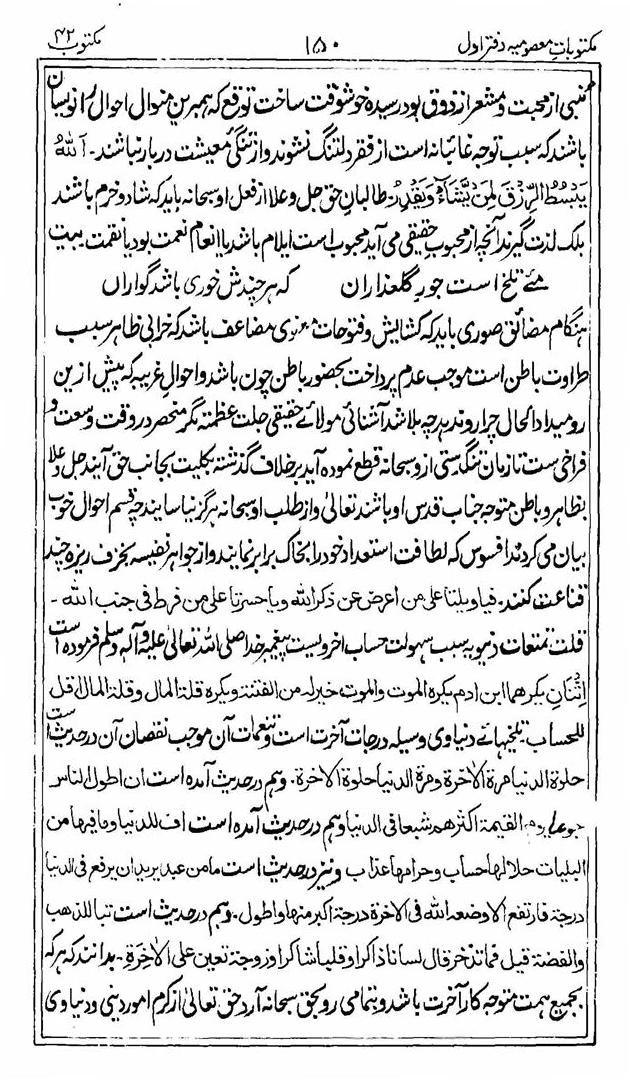 مکتوبات معصومیہ دفتر اول ۱۵۰ مکتوب ۴۲
منبی از محبت و مشعر از ذوق بود رسیده خوشوقت ساخت توقع که همبرین منوال احوال را نویسان
باشند که سبب توجه غائبانه است از فقر دلتنگ نشوند و از تنگی معیشت دربار نباشند۔ اَللّٰهُ
یَبْسُطُ الرِّزْقَ لِمَنْ یَّشَآءُ وَیَقْدِرُ۔ طالبان حق جل و علا از فعل او سبحانه باید که شاد و خرم باشند
بلک لذت گیرند آنچه از محبوب حقیقی می آید محبوب است ایلام باشد یا انعام نعمت بود یا نقمت بیت
مئے تلخ است جور گلعذاران که هر چندش خوری باشد گواران
هنگام مضائق صوری باید که کشایش و فتوحات معنوی مضاعف باشد که خرابی ظاهر سبب
طراوت باطن است موجب عدم پرداخت بحضور باطن چون باشد و احوال غریبه که پیش ازین
رو میداد الحال چرا روند بد چه بلا شد آشنائی مولائے حقیقی جلت عظمته مگر منحصر در وقت وسعت و
فراخی ست تا زمان تنگدستی ازو سبحانه قطع نموده آید بر خلاف گذشته بکلیت بجانب حق آیند جل و علا
بظاهر و باطن متوجه جناب قدس او باشند تعالیٰ و از طلب او سبحانه هرگز نیاسایند چه قسم احوال خوب
بیان می کردند افسوس که لطافت استعداد خود را بخاک برابر نمایند و از جواهر نفیسه بخزف ریزه چند
قناعت کنند۔ فیا ویلتا علی من اعرض عن ذکر الله و یا حسرتا علی من فرط فی جنب الله۔
قلت تمتعات دنیویه سبب سهولت حساب اخرویست پیغمبر خدا صلی الله تعالیٰ علیه و آله وسلم فرموده است
اِثْنَانِ یکرهما ابن ادم یکره الموت والموت خیر له من الفتنة ویکره قلة المال وقلة المال اقل
للحساب۔ تلخیهائے دنیاوی وسیله درجات آخرت است و تنعمات آن موجب نقصان آن در حدیث است
حلوة الدنیا مرة الاٰخرة ومرة الدنیا حلوة الاٰخرة۔ وهم در حدیث آمده است ان اطول الناس
جوعا یوم القیمة اکثرهم شبعا فی الدنیا وهم در حدیث آمده است اف للدنیا وما فیها من
البلیات حلالها حساب وحرامها عذاب و نیز در حدیث است ما من عبد یرید ان یرفع فی الدنیا
درجة فارتفع الا وضعه الله فی الاٰخرة درجة اکبر منها واطول۔ وهم در حدیث است تبا للذهب
والفضة قیل فما تدخر قال لسانا ذاکرا وقلبا شاکرا وزوجة تعین علی الاٰخِرَةِ۔ بدانند که هر که
بجمیع همت متوجه کار آخرت باشد و بتمامی رو بحق سبحانه آرد حق تعالیٰ از کرم امور دینی و دنیاوی